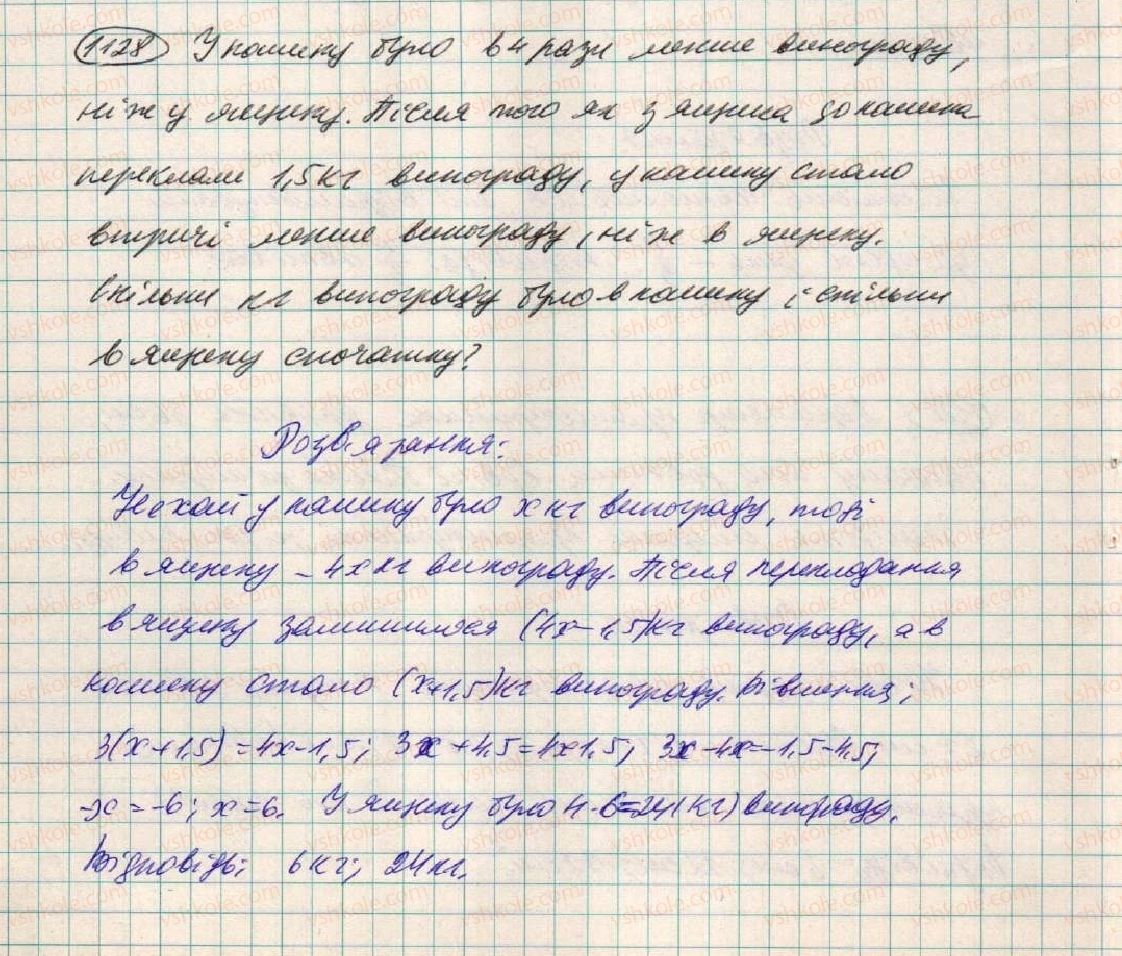 1128 У кошику було в 4 рази менше винограду,
ніж у ящику. Після того як з ящика до кошика
переклали 1,5 кг винограду, у кошику стало
втричі менше винограду, ніж в ящику.
Скільки кг винограду було в кошику і скільки
в ящику спочатку?
Розв'язання:
Нехай у кошику було x кг винограду, тоді
в ящику – 4x кг винограду. Після перекладання
в ящику залишилося (4x-1,5) кг винограду, а в
кошику стало (x+1,5) кг винограду. Рівняння:
3(x+1,5)=4x-1,5; 3x+4,5=4x1,5; 3x-4x=-1,5-4,5;
-x=-6; x=6. У ящику було 4·6=24 (кг) винограду.
Відповідь: 6 кг; 24 кг.